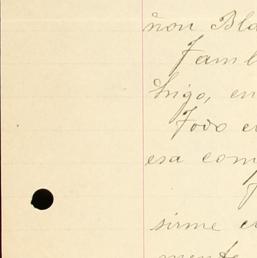 ñon Bla
Famb
trigo, en
Todo e
esa com
sirme e
mente